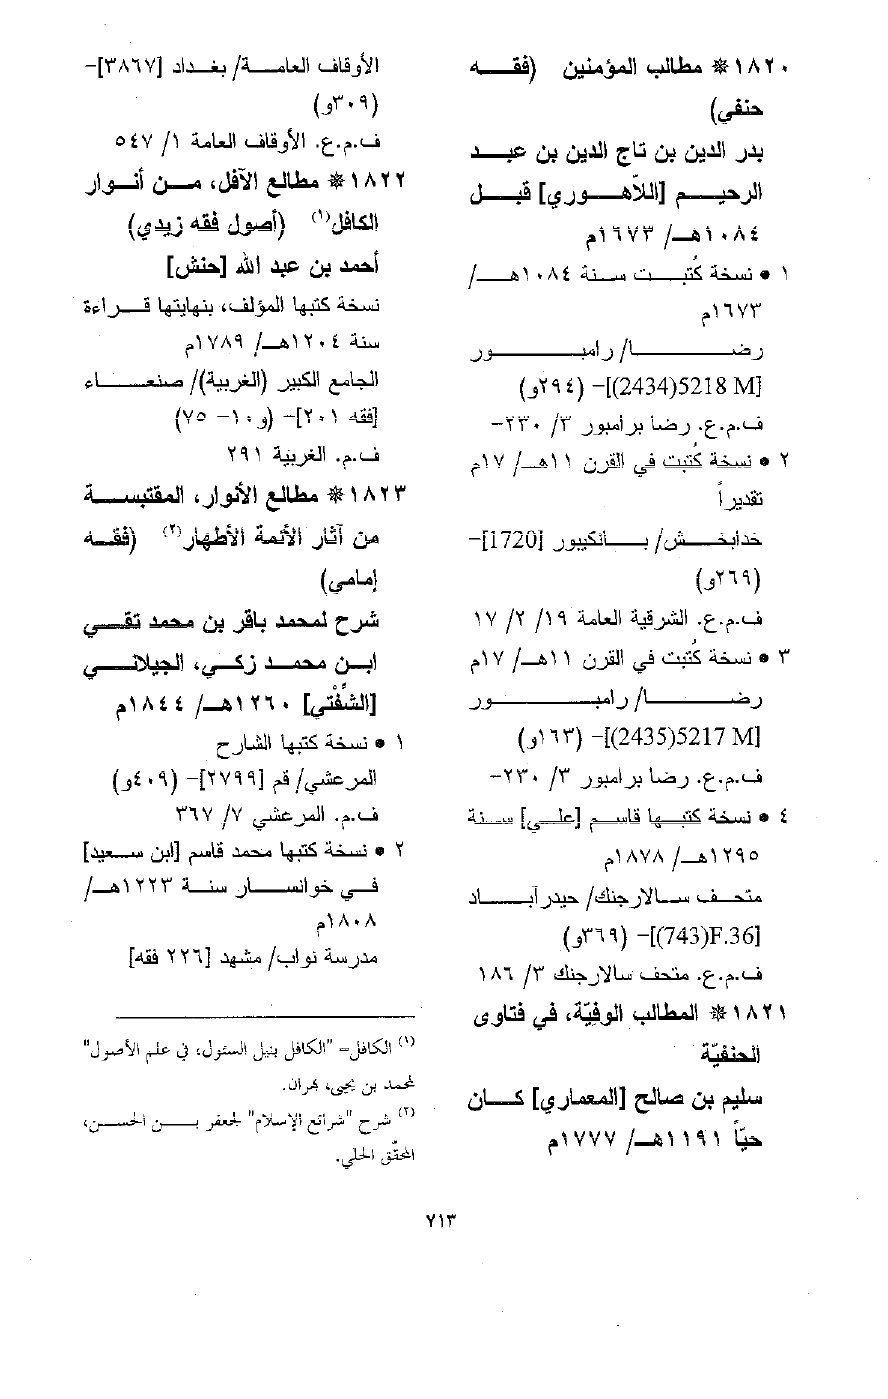 ١٨٢٠* مطالب المؤمنين (فقه
حنفي)
بدر الدين بن تاج الدين بن عبد
الرحيم [اللاّهوري] قبل
١٠٨٤هـ/ ١٦٧٣م
١ • نسخة كُتبت سنة ١٠٨٤هـ/
١٦٧٣م
رضا/ رامبور
[5218 M(2434)]– (٢٩٤و)
ف.م.ع. رضا برامبور ٣/ ٢٣٠–
٢ • نسخة كُتبت في القرن ١١هـ/ ١٧م
تقديراً
خدابخش/ بانكيبور [1720]–
(٢٦٩و)
ف.م.ع. الشرقية العامة ١٩/ ٢/ ١٧
٣ • نسخة كُتبت في القرن ١١هـ/ ١٧م
رضا/ رامبور
[5217 M(2435)]– (١٦٣و)
ف.م.ع. رضا برامبور ٣/ ٢٣٠–
٤ • نسخة كتبها قاسم [علي] سنة
١٢٩٥هـ/ ١٨٧٨م
متحف سالارجنك/ حيدرآباد
[743)F.36)]– (٣٦٩و)
ف.م.ع. متحف سالارجنك ٣/ ١٨٦
١٨٢١* المطالب الوفيّة، في فتاوى
الحنفيّة
سليم بن صالح [المعماري] كان
حيّاً ١١٩١هـ/ ١٧٧٧م
الأوقاف العامة/ بغداد [٣٨٦٧]–
(٣٠٩و)
ف.م.ع. الأوقاف العامة ١/ ٥٤٧
١٨٢٢* مطالع الآفل، من أنوار
الكافل(١) (أصول فقه زيدي)
أحمد بن عبد الله [حنش]
نسخة كتبها المؤلف، بنهايتها قراءة
سنة ١٢٠٤هـ/ ١٧٨٩م
الجامع الكبير (الغربية)/ صنعاء
[فقه ٢٠١]– (و١٠– ٧٥)
ف.م. الغربية ٢٩١
١٨٢٣* مطالع الأنوار، المقتبسة
من آثار الأئمة الأطهار(٢) (فقه
إمامي)
شرح لمحمد باقر بن محمد تقي
ابن محمد زكي، الجيلاني
[الشَّفْتي] ١٢٦٠هـ/ ١٨٤٤م
١ • نسخة كتبها الشارح
المرعشي/ قم [٢٧٩٩]– (٤٠٩و)
ف.م. المرعشي ٧/ ٣٦٧
٢ • نسخة كتبها محمد قاسم [ابن سعيد]
في خوانسار سنة ١٢٢٣هـ/
١٨٠٨م
مدرسة نواب/ مشهد [٢٢٦ فقه]
(١) الكافل= "الكافل بنيل السئول، في علم الأصول"
لمحمد بن يحيى، بهران.
(٢) شرح "شرائع الإسلام" لجعفر بن الحسن،
المحقّق الحلي.
٧١٣